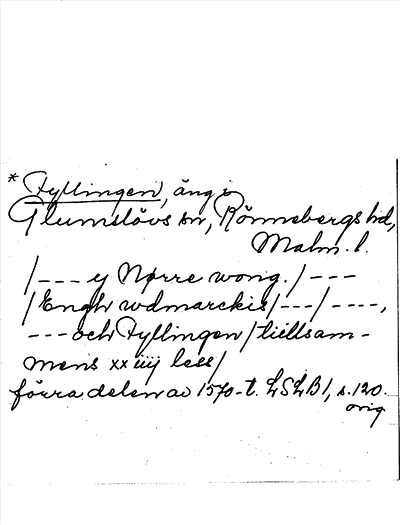 * Fyllingen, äng i
Glumslövs sn, Rönnebergs hd,
Malm. l.
/--- ij Nørre wong./---
/Engh udmarckis/---/----,
---och Fyllingen/tiillsam-
mens xx iiij less/
förra delen av 1570-t. LSLB1, s. 120.
orig